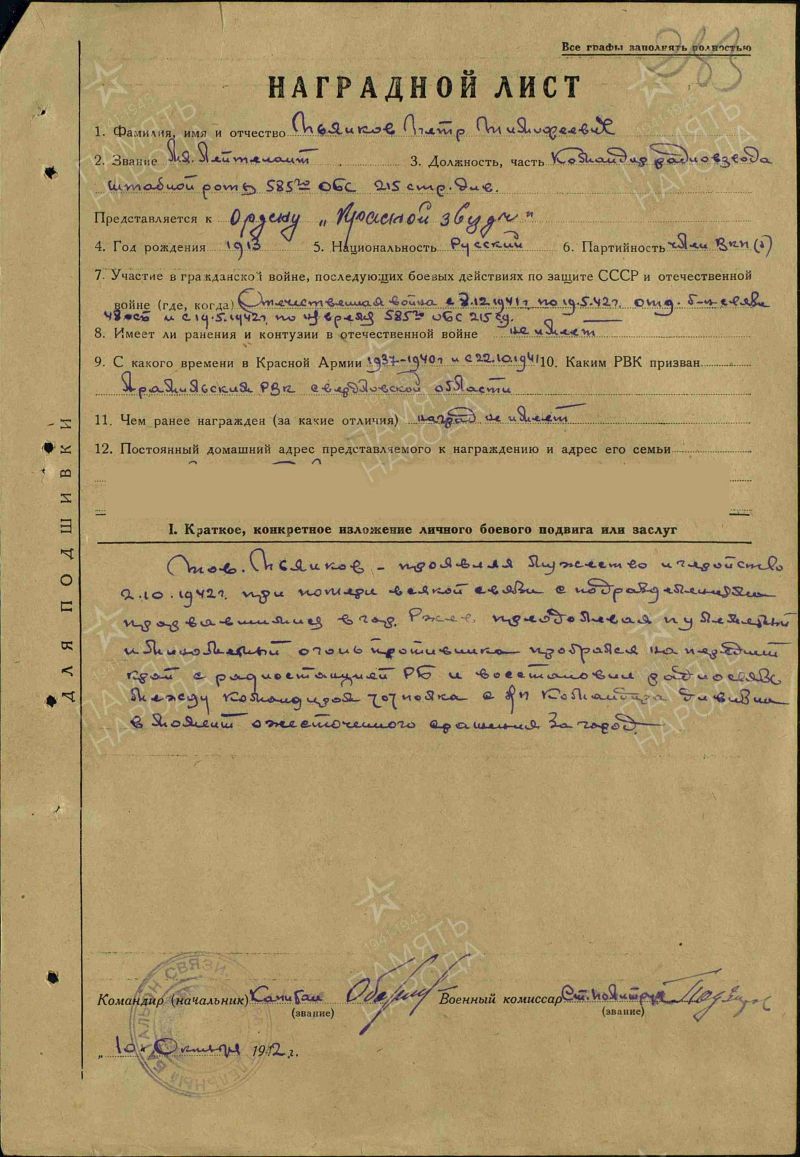 Все графы заполнять полностью
283
НАГРАДНОЙ ЛИСТ
1. Фамилия, имя и отчество Пьянков Петр Тимофеевич
2. Звание Мл. Лейтенант 3. Должность, часть Командир радиовзвода
штабной роты 585го ОБС 215 стр. див.
Представляется к Ордену „Красной звезды"
4. Год рождения 1913 5. Национальность Русский 6. Партийность член ВКП(б)
7. Участие в гражданской войне, последующих боевых действиях по защите СССР и отечественной
войне (где, когда) Отечественная война с 8.12.1941г. по 19.5.42г. отд. б-н связи
48 и с 19.5.1942г. по н/время 585го ОБС 215 сд.
8. Имеет ли ранения и контузии в отечественной войне не имеет
9. С какого времени в Красной Армии 1937-1940г и с 22.10.1941 10. Каким РВК призван
Арамильским РВК свердловской области
11. Чем ранее награжден (за какие отличия) наград не имеет
12. Постоянный домашний адрес представляемого к награждению и адрес его семьи
I. Краткое, конкретное изложение личного боевого подвига или заслуг
Тов. Пьянков – проявил мужество и геройство
2.10.1942г. при потери всякой связи с подразделениями
прорвавшимися в гор. Ржев, преодолевая пулеметный
и минометный огонь противника пробрался на передний
край с радиостанцией РБ и восстановил радиосвязь
между командиром 707 полка с КП командира дивизии
в момент ожесточенного сражения за город.
Командир (начальник) Капитан Военный комиссар Ст. политрук
(звание) (звание)
„10" Октября 1942 г.
ДЛЯ ПОДШИВКИ
БАТАЛЬОН СВЯЗИ
1941-1945
ПАМЯТЬ
НАРОДА